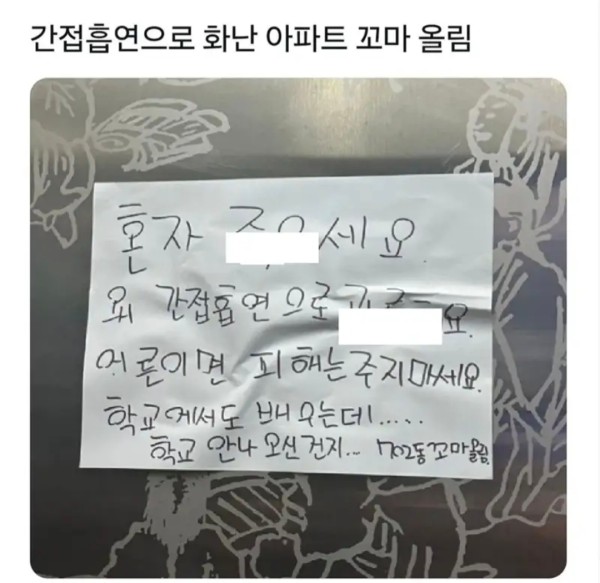 간접흡연으로 화난 아파트 꼬마 올림
혼자 세요.
왜 간접흡연으로 요.
어른이면 피해는 주지마세요.
학교에서도 배우는데.....
학교 안나오신건지... 702동꼬마올림